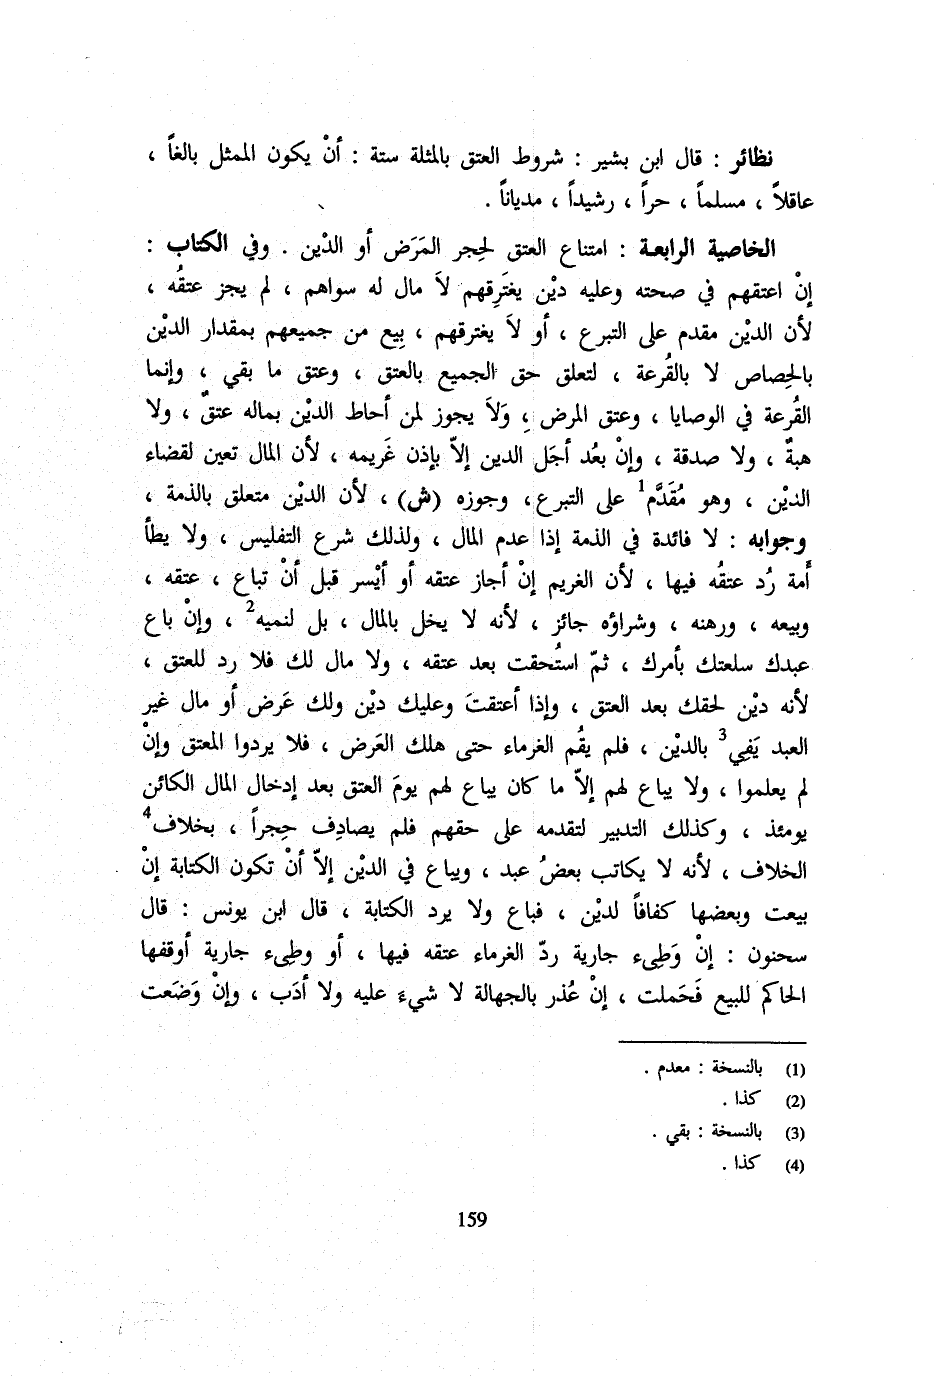 نظائر : قال ابن بشير : شروط العتق بالمثلة ستة : أنْ يكون الممثل بالغاً ،
عاقلاً ، مسلماً ، حراً ، رشيداً ، مدياناً .
الخاصية الرابعة : امتناع العتق لحِجر المَرَض أو الدْين . وفي الكتاب :
إنْ اعتقهم في صحته وعليه ديْن يغتَرِقهم لاَ مال له سواهم ، لم يجز عتقُه ،
لأن الديْن مقدم على التبرع ، أو لاَ يغترقهم ، بِيع من جميعهم بمقدار الديْن
بالحِصاص لا بالقُرعة ، لتعلق حق الجميع بالعتق ، وعتق ما بقي ، وإنما
القُرعة في الوصايا ، وعتق المرض ، وَلاَ يجوز لمن أحاط الديْن بماله عتقٌ ، ولا
هبةٌ ، ولا صدقة ، وإنْ بعُد أجَل الدين إلاّ بإذن غَريمه ، لأن المال تعين لقضاء
الديْن ، وهو مُقَدَّم1 على التبرع ، وجوزه (ش) ، لأن الديْن متعلق بالذمة ،
وجوابه : لا فائدة في الذمة إذا عدم المال ، ولذلك شرع التفليس ، ولا يطأ
أَمة رُد عتقُه فيها ، لأن الغريم إنْ أجاز عتقه أو أيْسر قبل أنْ تباع ، عتقه ،
وبيعه ، ورهنه ، وشراؤه جائز ، لأنه لا يخل بالمال ، بل لنميه2 ، وإنْ باع
عبدك سلعتك بأمرك ، ثمّ استُحقت بعد عتقه ، ولا مال لك فلا رد للعتق ،
لأنه ديْن لحقك بعد العتق ، وإذا أعتقتَ وعليك ديْن ولك عَرض أو مال غير
العبد يَفِي3 بالديْن ، فلم يقُم الغرماء حتى هلك العَرض ، فلا يردوا المعتق وإنْ
لم يعلموا ، ولا يباع لهم إلاّ ما كان يباع لهم يومَ العتق بعد إدخال المال الكائن
يومئذ ، وكذلك التدبير لتقدمه على حقهم فلم يصادِف حِجراً ، بخلاف4
الخلاف ، لأنه لا يكاتب بعضُ عبد ، ويباع في الديْن إلاّ أنْ تكون الكتابة إنْ
بيعت وبعضها كفافاً لديْن ، فباع ولا يرد الكتابة ، قال ابن يونس : قال
سحنون : إنْ وَطِىء جارية ردّ الغرماء عتقه فيها ، أو وطِىء جارية أوقفها
الحاكم للبيع فَحَملت ، إنْ عُذر بالجهالة لا شيءَ عليه ولا أدَب ، وإنْ وَضَعت
(1) بالنسخة : معدم .
(2) كذا .
(3) بالنسخة : بقي .
(4) كذا .
159